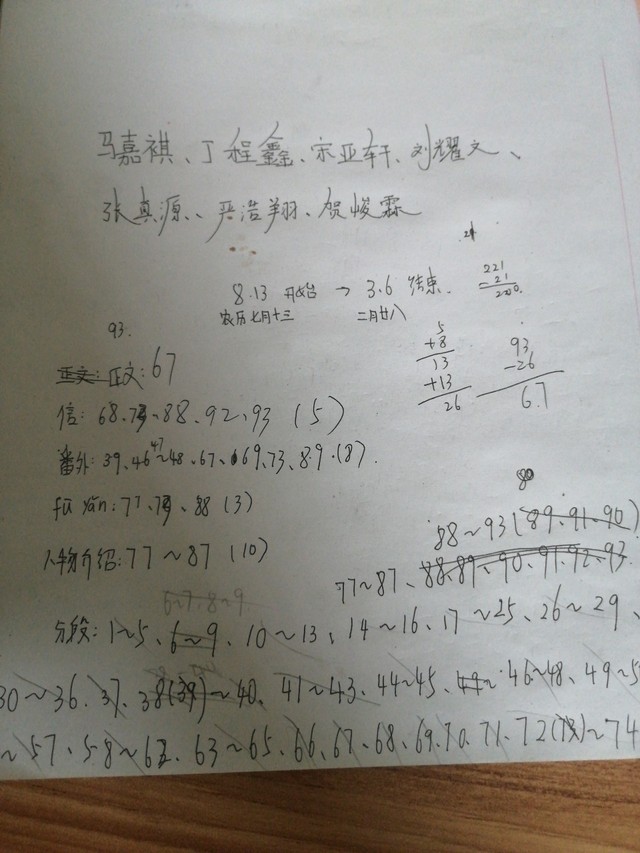 马嘉祺、丁程鑫、宋亚轩、刘耀文、
张真源、严浩翔、贺峻霖
21
8.13 开始 → 3.6 结束.
农历七月十三 二月廿八
221
-21
200.
93.
5
+8
13
+13
26
93
-26
67
正文: 67
信: 68、88、92、93 (5)
番外: 39、46~48、67、69、73、89.(8)
47
fū yǎn: 77、88 (3)
人物介绍: 77~87 (10)
88~93 (89、91、90)
77~87、88、89、90、91、92、93
6~7、8~9
分段: 1~5、6~9、10~13、14~16、17~25、26~29、
30~36、37、38(39)~40、41~43、44~45、46~48、49~5
~57、58~62、63~65、66、67、68、69、70、71、72(73)~74